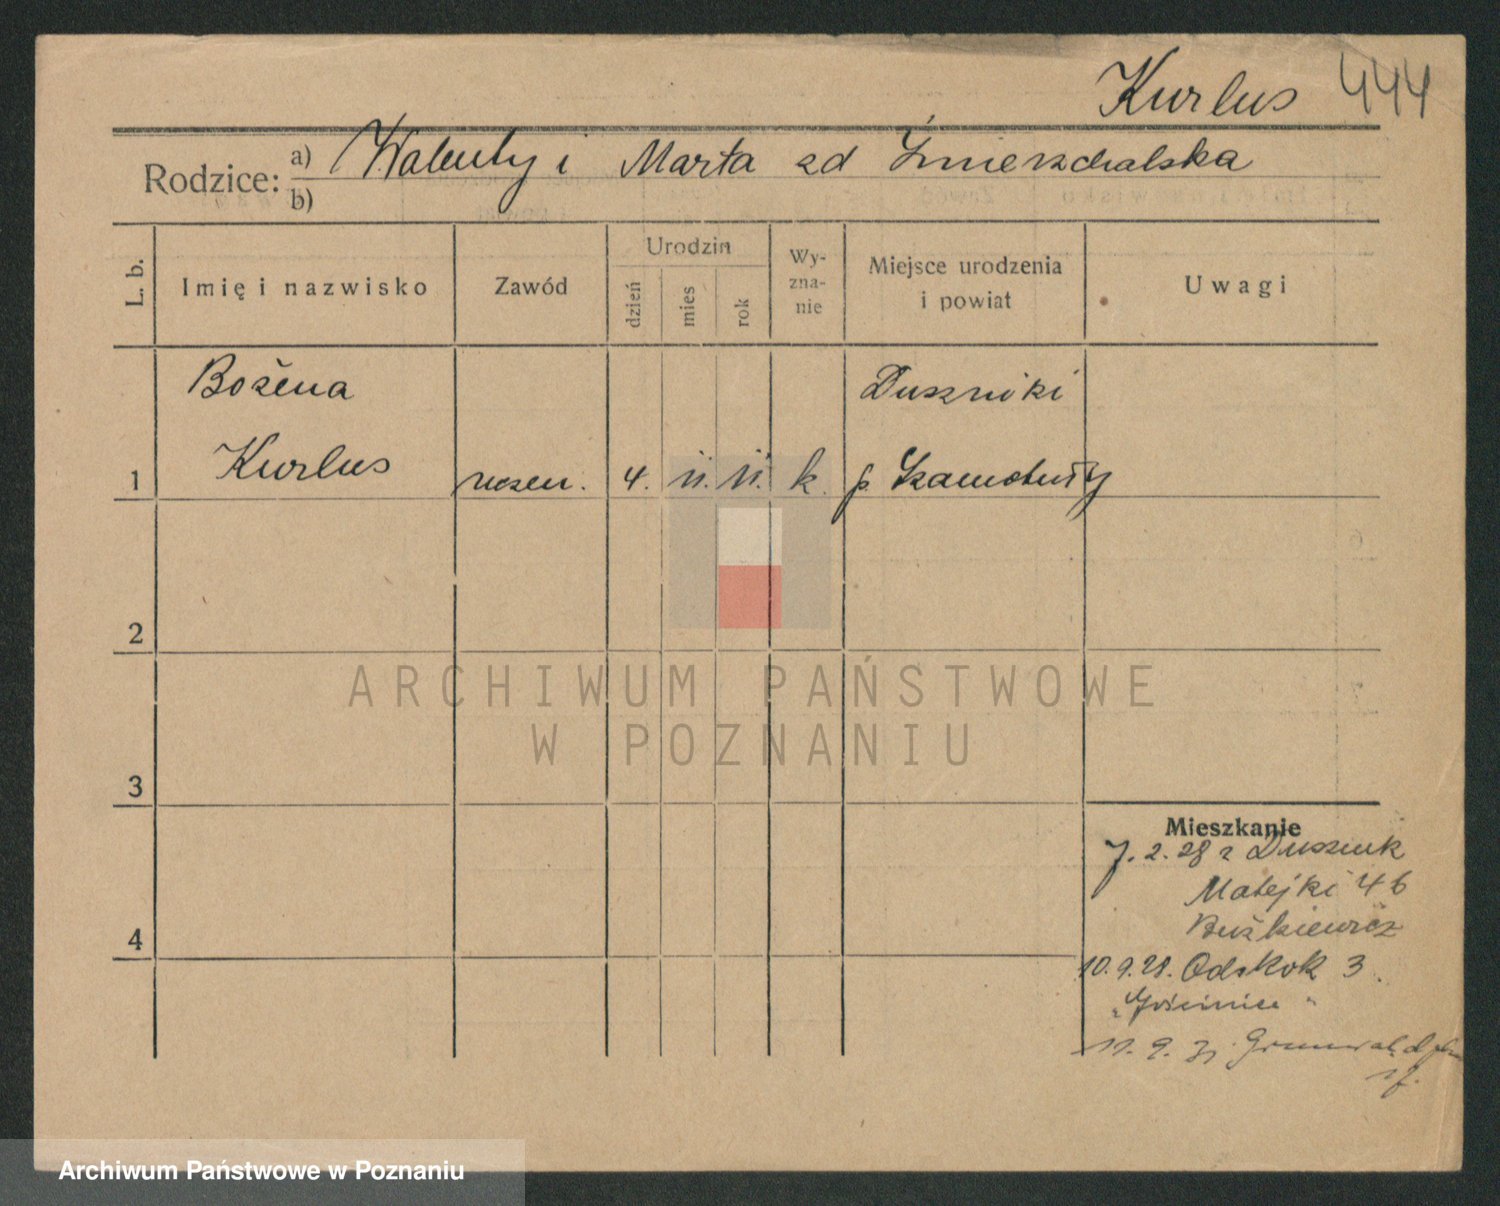 Kurlus 444
Rodzice: a) Walenty i Marta zd Śmierzchalska
b)
L. b.
Imię i nazwisko
Zawód
Urodzin
dzień
mies
rok
Wy-
zna-
nie
Miejsce urodzenia
i powiat
Uwagi
Bożena
Kurlus
Duszniki
1
uczen. 4. 11. 11. k. p. Szamotuły
2
3
4
ARCHIWUM PAŃSTWOWE
W POZNANIU
Mieszkanie
7.2.28 z Dusznik
Matejki 46
10.9.28. Odskok 3.
11.9.31
Archiwum Państwowe w Poznaniu